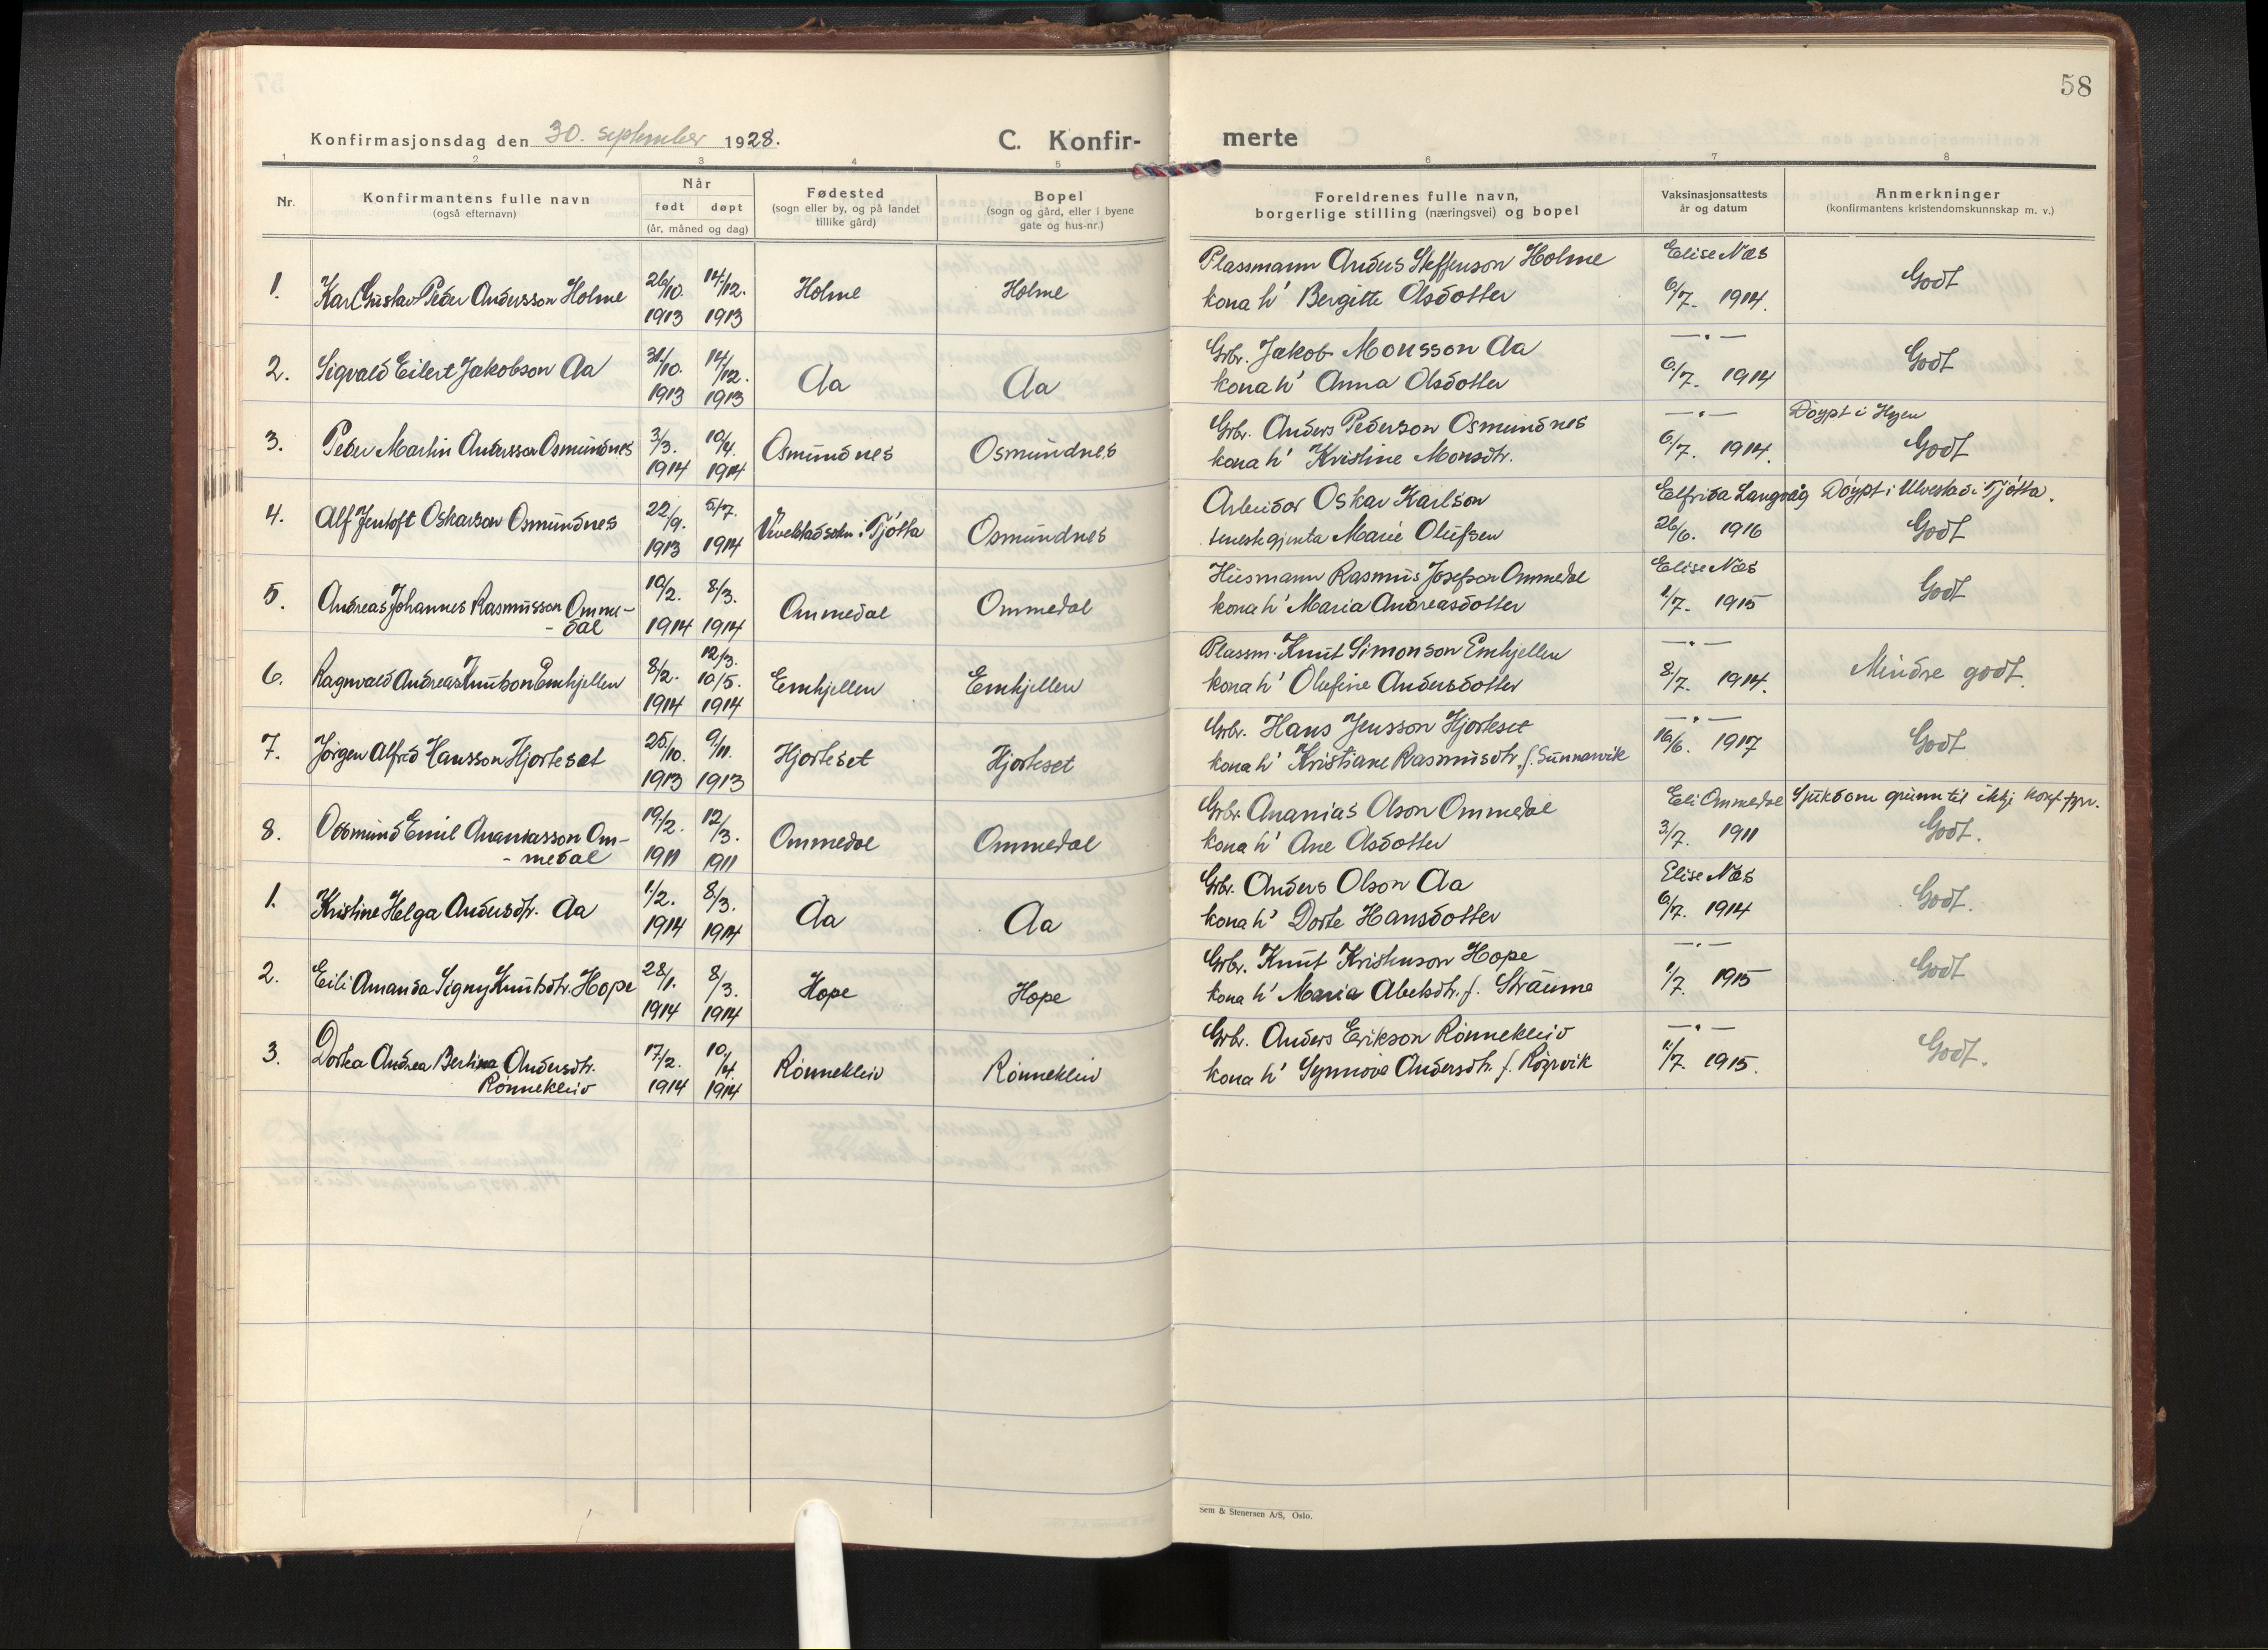 58
Konfirmasjonsdag den 30. september 1928.
C. Konfir-
merte
1 2 3 4 5 6 7 8
Nr.
Konfirmantens fulle navn
(også efternavn)
Når
født døpt
(år, måned og dag)
Fødested
(sogn eller by, og på landet
tillike gård)
Bopel
(sogn og gård, eller i byene
gate og hus-nr.)
Foreldrenes fulle navn,
borgerlige stilling (næringsvei) og bopel
Vaksinasjonsattests
år og datum
Anmerkninger
(konfirmantens kristendomskunnskap m. v.)
Plassmann Anders Steffenson Holme Elise Næs
1. Karl Gustav Peder Andersson Holme 26/10. 14/12. Holme Holme kona h' Bergitte Olsdotter 6/7. 1914. Godt
1913 1913
Grbr. Jakob Monsson Aa —"—
2. Sigvald Eilert Jakobson Aa 31/10. 14/12. Aa Aa kona h' Anna Olsdotter 6/7. 1914 Godt
1913 1913
Grbr. Anders Pederson Osmundnes —"— Döypt i Hyen
3. Peder Martin Andersson Osmundnes 3/3. 10/4. Osmundnes Osmundnes kona h' Kristine Monsdtr. 6/7. 1914. Godt
1914 1914
Arbeidar Oskar Karlson Elfrida Langvåg Döypt i Ulvestad i Tjötta.
4. Alf Jentoft Oskarson Osmundnes 22/9. 5/7. Vevelstad sokn i Tjötta Osmundnes tenestegjenta Marie Olufsen 26/6. 1916 Godt
1913 1914
Husmann Rasmus Josefson Ommedal Elise Næs
5. Andreas Johannes Rasmusson Omme- 10/2. 8/3. Ommedal Ommedal kona h' Maria Andreasdotter 1/7. 1915 Godt
- dal 1914 1914
12/3.
Plassm. Knut Simonson Emhjellen —"—
6. Ragnvald Andreas Knutson Emhjellen 8/2. 10/5. Emhjellen Emhjellen kona h' Olufine Andersdotter 8/7. 1914. Mindre godt.
1914 1914
Grbr. Hans Jensson Hjorteset —"—
7. Jörgen Alfred Hansson Hjorteset 25/10. 9/11. Hjorteset Hjorteset kona h' Kristiane Rasmusdtr. f. Sunnarvik 16/6. 1917 Godt
1913 1913
Grbr. Ananias Olson Ommedal Eli Ommedal Sjukdom grunn til ikkj konf. fyrr.
8. Oddmund Emil Ananiasson Om- 19/2. 12/3. Ommedal Ommedal kona h' Ane Olsdotter 3/7. 1911 Godt.
- medal 1911 1911
Grbr. Anders Olson Aa Elise Næs
1. Kristine Helga Andersdtr. Aa 1/2. 8/3. Aa Aa kona h' Dorte Hansdotter 6/7. 1914 Godt.
1914 1914
Grbr. Knut Kristenson Hope —"—
2. Eili Amanda Signy Knutsdtr. Hope 28/1. 8/3. Hope Hope kona h' Maria Abelsdtr. f. Straume 1/7. 1915 Godt
1914 1914
Grbr. Anders Erikson Rönnekleiv —"—
3. Dortea Andrea Bertina Andersdtr. 17/2. 10/4. Rönnekleiv Rönnekleiv kona h' Synnöve Andersdtr. f. Röyrvik 1/7. 1915. Godt.
Rönnekleiv 1914 1914
Sem & Stenersen A/S, Oslo.